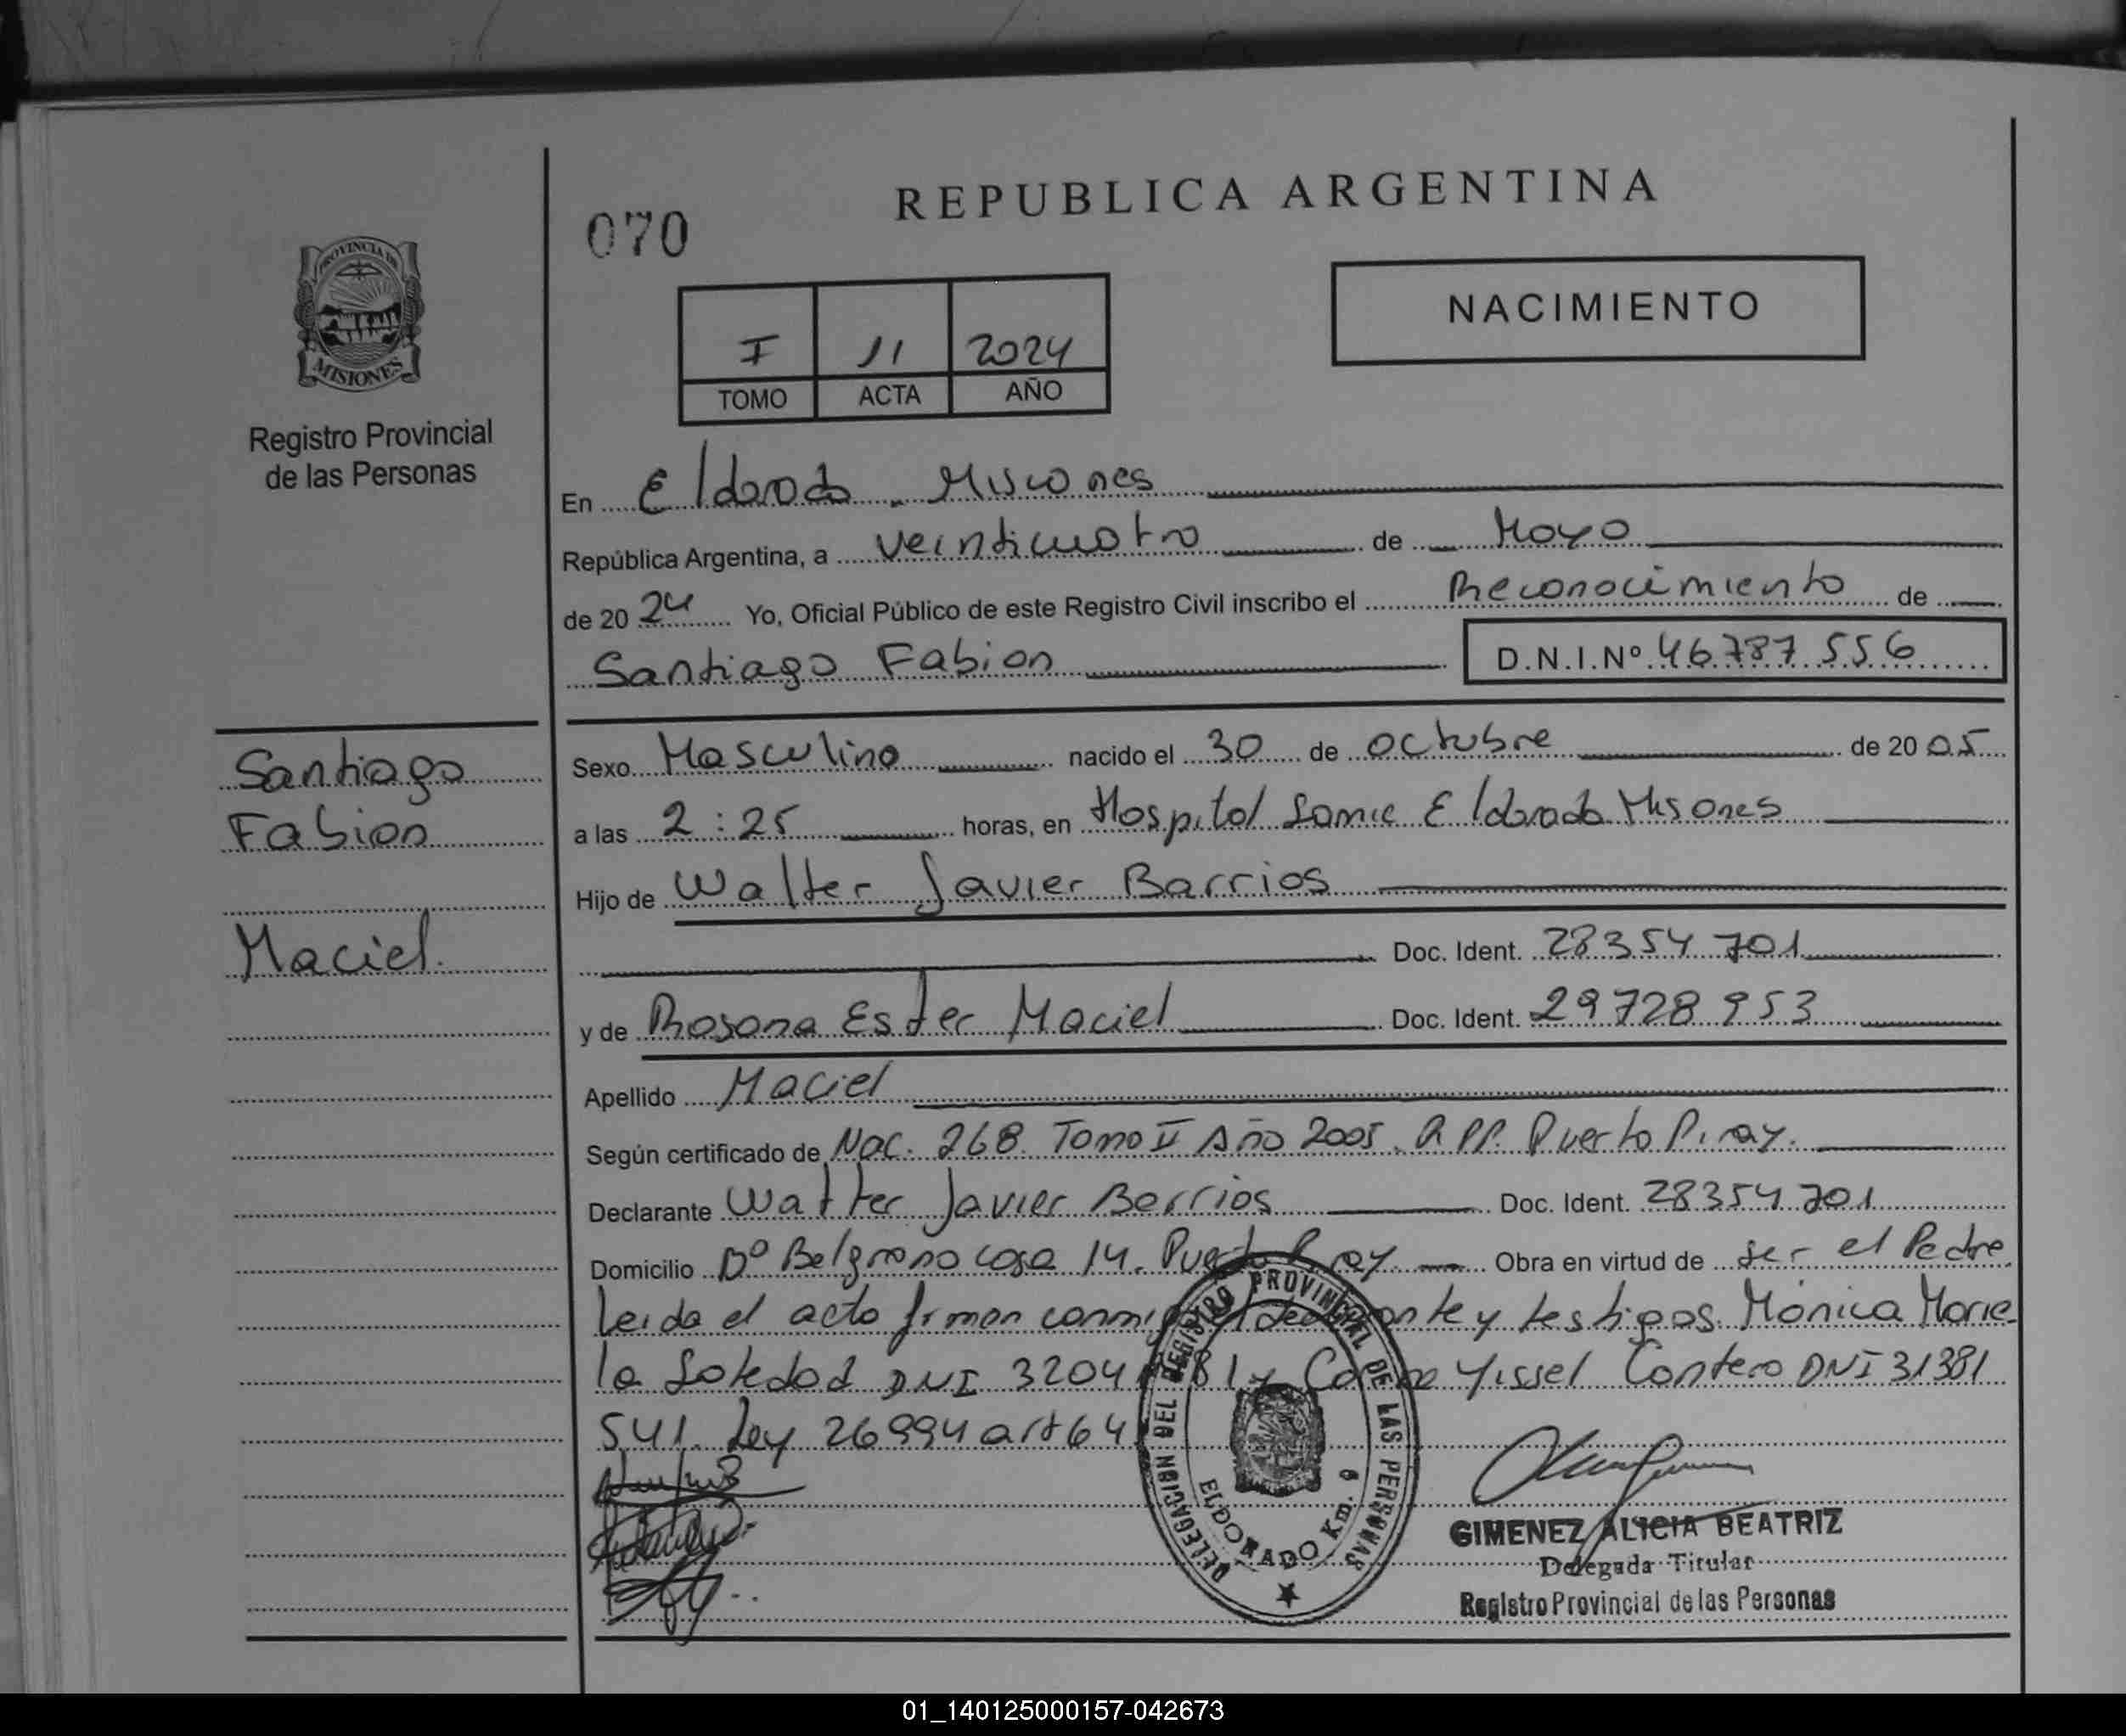 REPUBLICA ARGENTINA
070
NACIMIENTO
PROVINCIA DE
MISIONES
I 11 2024
TOMO ACTA AÑO
Registro Provincial
de las Personas
En Eldorado - Misiones
República Argentina, a veinticuatro de Mayo
de 20 24 Yo, Oficial Público de este Registro Civil inscribo el Reconocimiento de
Santiago Fabian D.N.I.Nº 46.787.556
Santiago
Fabian
Maciel
Sexo Masculino nacido el 30 de octubre de 20 05
a las 2:25 horas, en Hospital Samic Eldorado Misiones
Hijo de Walter Javier Barrios
Doc. Ident. 28354701
y de Rosana Ester Maciel Doc. Ident. 29728953
Apellido Maciel
Según certificado de Nac. 268 Tomo II Año 2005. R.P.P. Puerto Piray.
Declarante Walter Javier Barrios Doc. Ident. 28354701
Domicilio Bº Belgrano casa 14. Puerto Piray Obra en virtud de ser el Padre
Leida el acta firman conmigo declarante y testigos Mónica Marie
la Soledad DNI 3204 81 y Yissel Cantero DNI 31381
541. Ley 26994 art 64
DELEGACION DEL REGISTRO PROVINCIAL DE LAS PERSONAS
ELDORADO Km. 9
GIMENEZ ALICIA BEATRIZ
Delegada Titular
Registro Provincial de las Personas
01_140125000157-042673